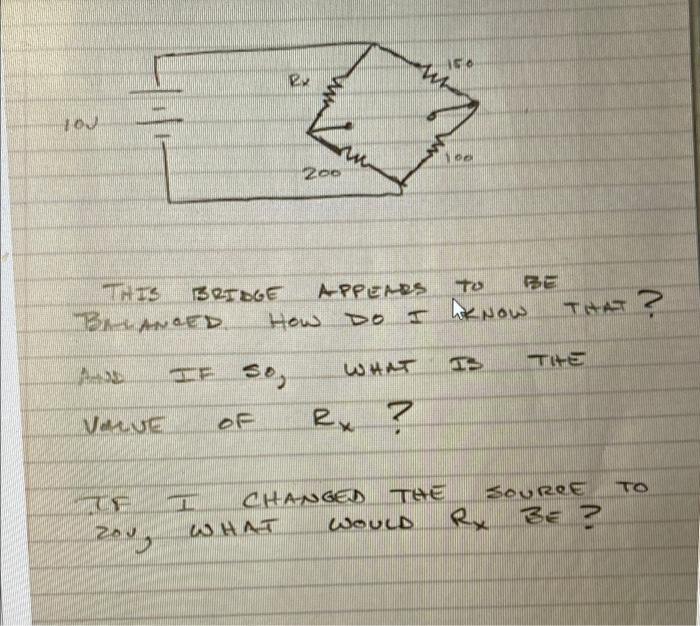 Rx
150
10V
200
100
THIS BRIDGE APPEARS TO BE
BALANCED. HOW DO I KNOW THAT?
AND IF SO, WHAT IS THE
VALUE OF Rx ?
IF I CHANGED THE SOURCE TO
20V, WHAT WOULD Rx BE?